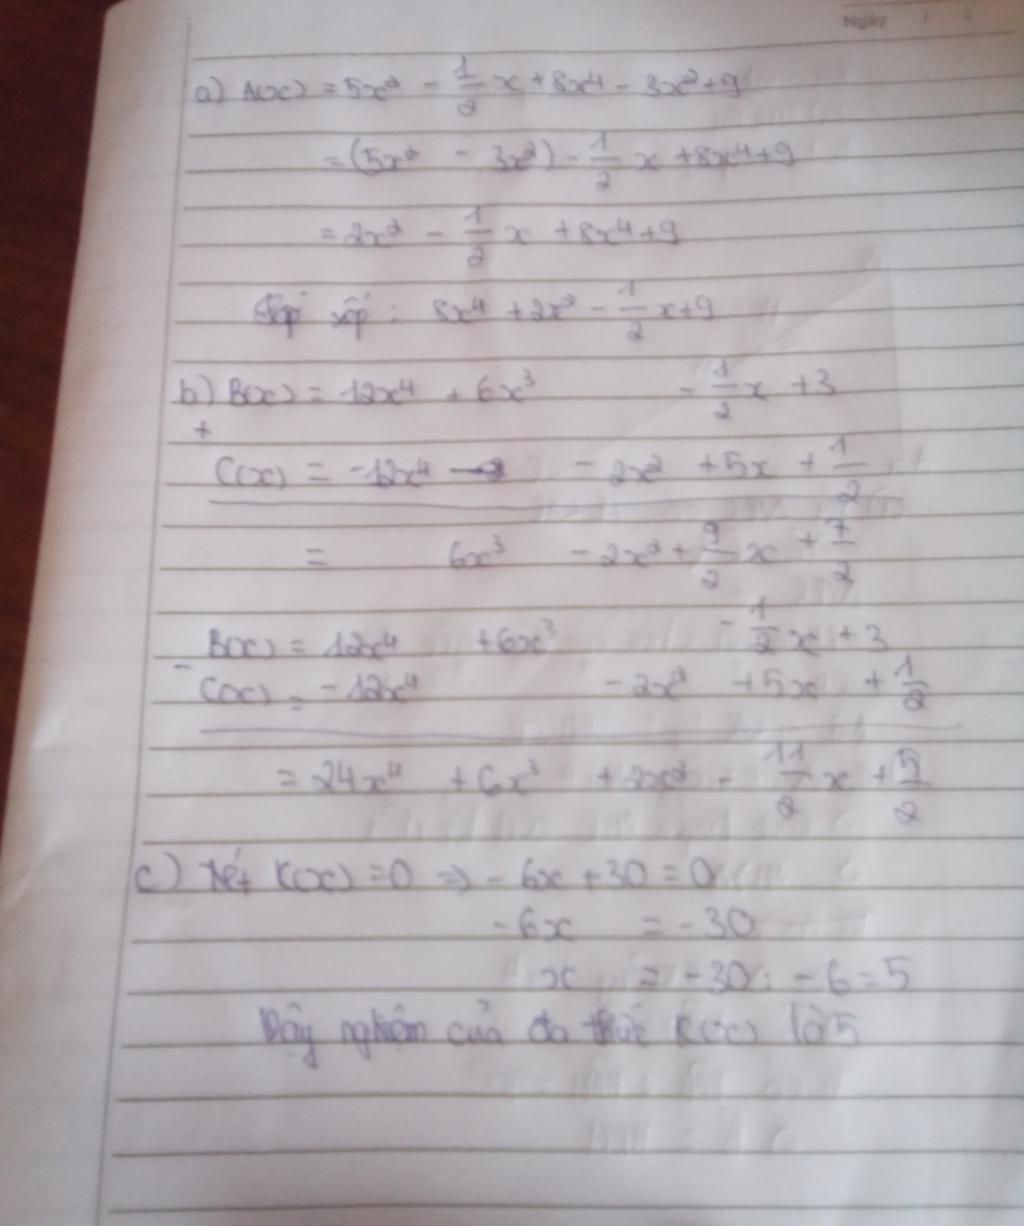 Ngày
a) A(x) = 5x² - 1/2 x + 8x⁴ - 3x² + 9
= (5x² - 3x²) - 1/2 x + 8x⁴ + 9
= 2x² - 1/2 x + 8x⁴ + 9
Sắp xếp : 8x⁴ + 2x² - 1/2 x + 9
b) B(x) = 12x⁴ + 6x³ - 1/2 x + 3
+
C(x) = -12x⁴ - 2x² + 5x + 1/2
= 6x³ - 2x² + 9/2 x + 7/2
B(x) = 12x⁴ + 6x³ - 1/2 x + 3
-
C(x) = -12x⁴ - 2x² + 5x + 1/2
= 24x⁴ + 6x³ + 2x² - 11/2 x + 5/2
c) Xét K(x) = 0 => - 6x + 30 = 0
-6x = -30
x = -30 : -6 = 5
Vậy nghiệm của đa thức K(x) là 5